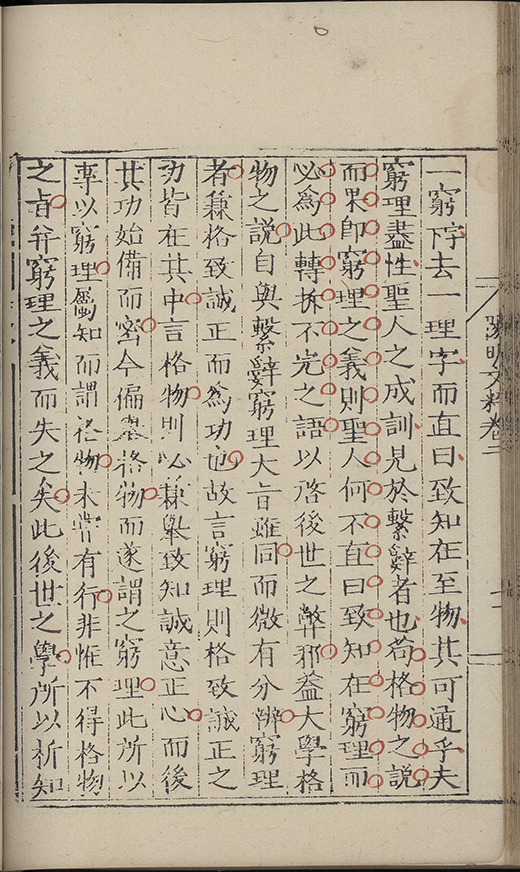 一窮字去一理字而直曰致知在至物其可通乎夫
窮理盡性聖人之成訓見於繫辭者也苟格物之說
而果即窮理之義則聖人何不直曰致知在窮理而
必為此轉折不完之語以啓後世之弊邪蓋大學格
物之說自與繫辭窮理大旨雖同而微有分辨窮理
者兼格致誠正而為功也故言窮理則格致誠正之
功皆在其中言格物則必兼舉致知誠意正心而後
其功始備而密今偏舉格物而遂謂之窮理此所以
專以窮理屬知而謂格物未常有行非惟不得格物
之旨并窮理之義而失之矣此後世之學所以析知
陽明文粹卷二